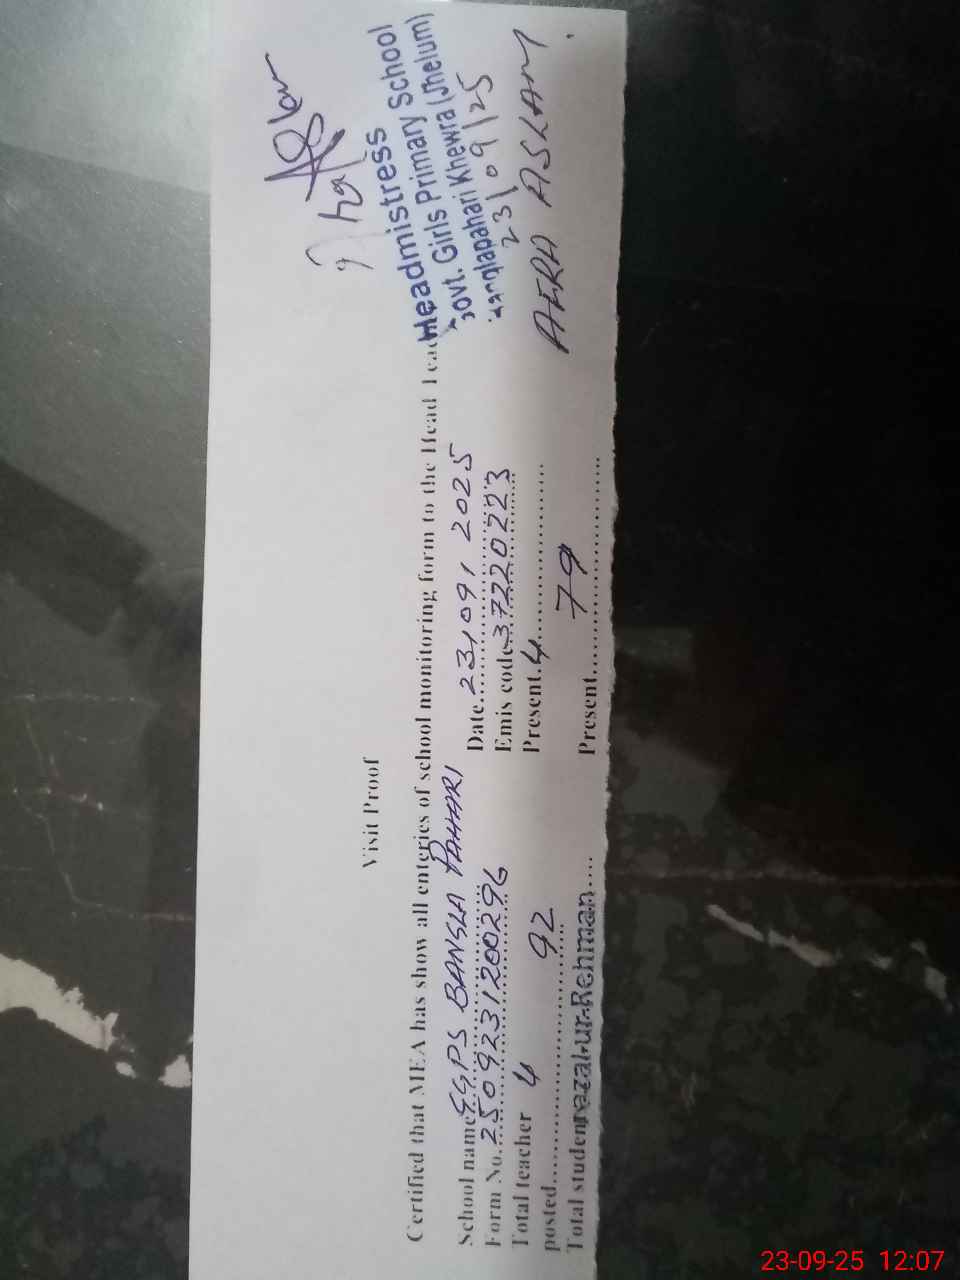 Visit Proof
Certified that MEA has show all enteries of school monitoring form to the Head
School name GGPS BANGLA PAHARI Date 23/09/2025
Form No. 2509231200296 Emis code 37220223
Total teacher 4 Present. 4
posted 92
Total studen fazal-ur-Rehman Present 79
Headmistress
Govt. Girls Primary School
Banglapahari Khewra (Jhelum)
23/09/25
AFRA ASLAM
23-09-25 12:07